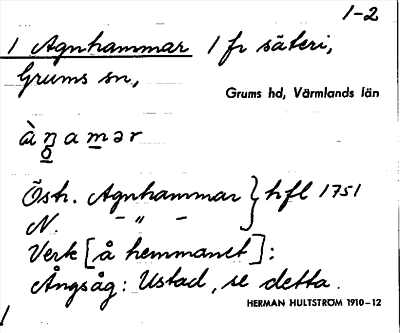 1-2
1 Agnhammar 1 fr säteri,
Grums sn,
Grums hd, Värmlands län
àŋamər
Östr. Agnhammar } hfl 1751
N. - " -
Verk [å hemmanet]:
Ångsåg: Ustad, se detta.
HERMAN HULTSTRÖM 1910-12